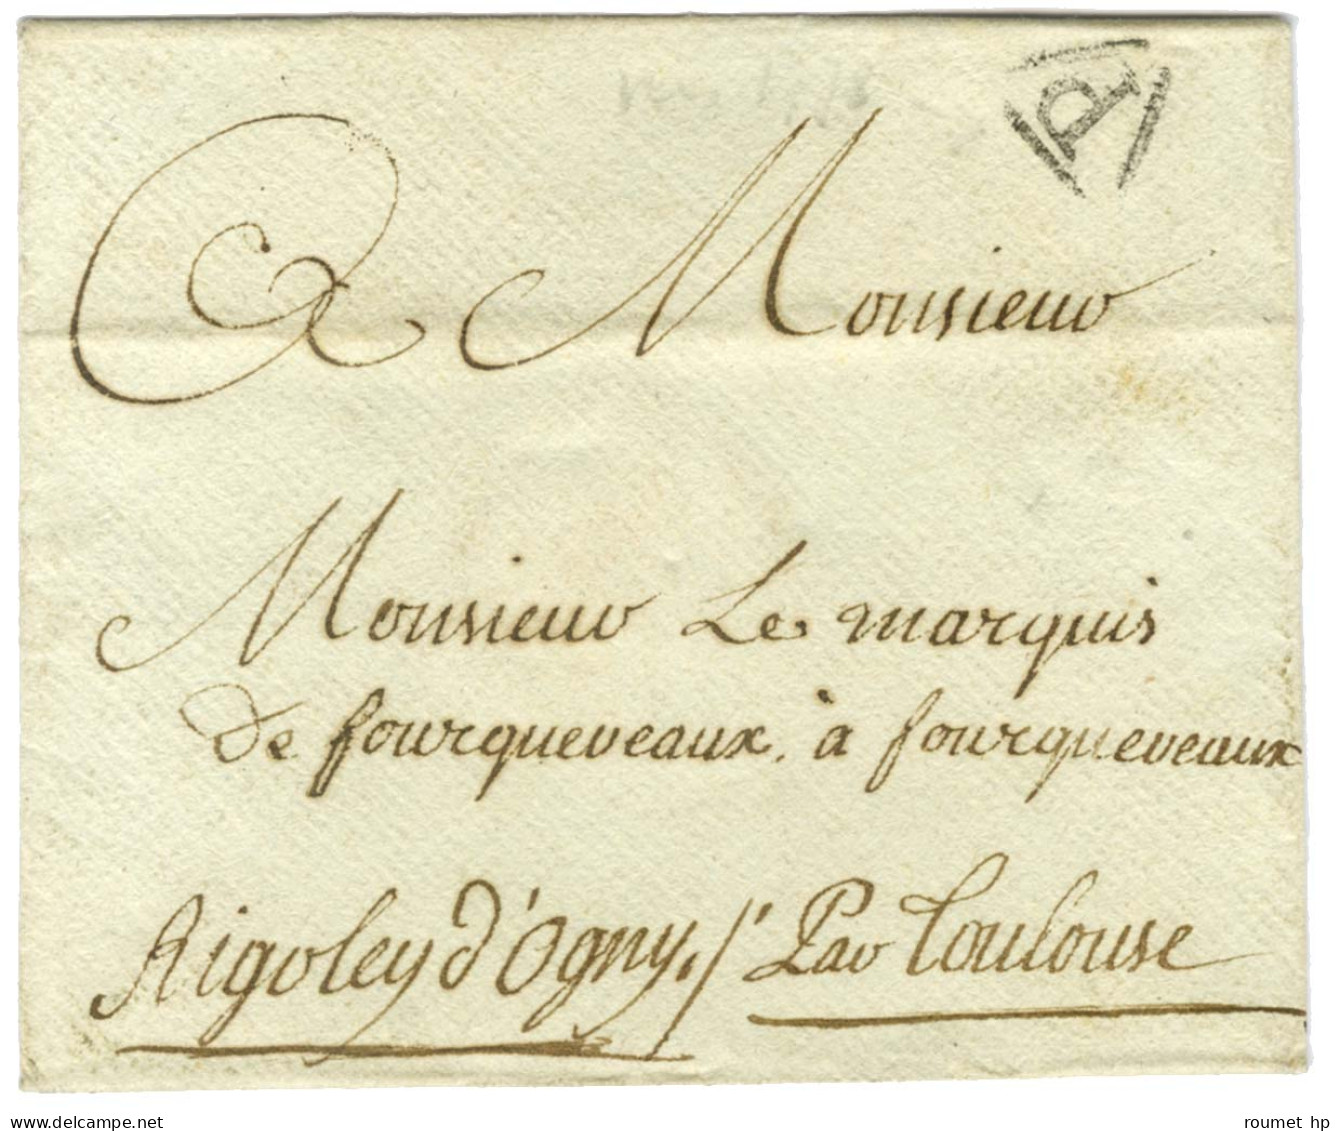 P
A Monsieur
Monsieur Le marquis
de fourqueveaux. à fourqueveaux
Rigoley d'Ogny. / Par Toulouse
delcampe.net
roumet hp